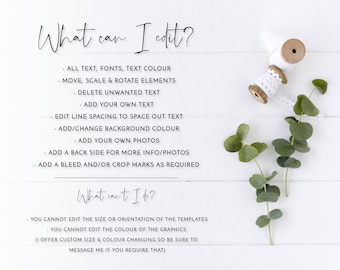 What can I edit?
- ALL TEXT, FONTS, TEXT COLOUR
- MOVE, SCALE & ROTATE ELEMENTS
- DELETE UNWANTED TEXT
- ADD YOUR OWN TEXT
- EDIT LINE SPACING TO SPACE OUT TEXT
- ADD/CHANGE BACKGROUND COLOUR
- ADD YOUR OWN PHOTOS
- ADD A BACK SIDE FOR MORE INFO/PHOTOS
- ADD A BLEED AND/OR CROP MARKS AS REQUIRED
What can't I do?
- YOU CANNOT EDIT THE SIZE OR ORIENTATION OF THE TEMPLATES
- YOU CANNOT EDIT THE COLOUR OF THE GRAPHICS
(I OFFER CUSTOM SIZE & COLOUR CHANGING SO BE SURE TO
MESSAGE ME IF YOU REQUIRE THAT)